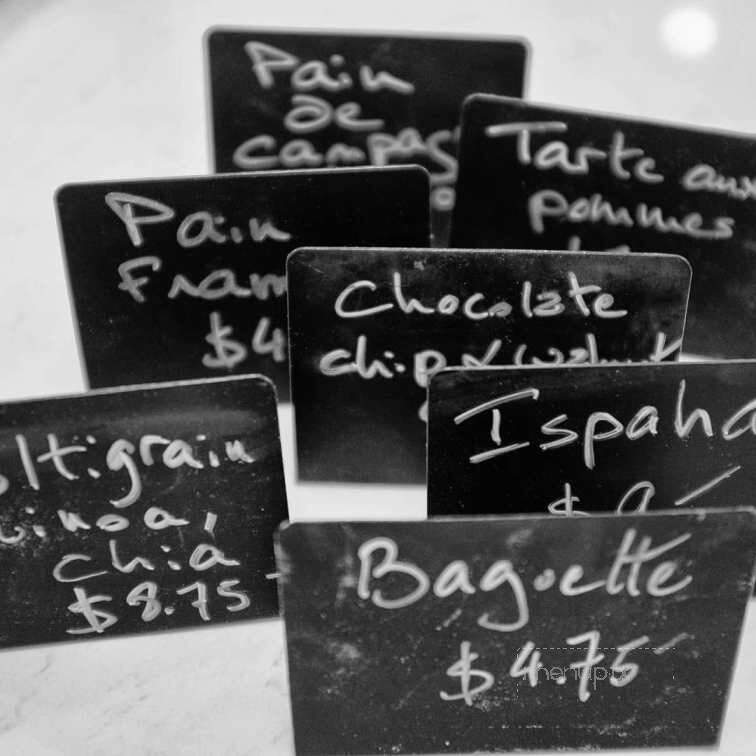 Pain
de
campag
Tarte aux
pommes
Pain
Fram
$4
Chocolate
chip
Ispaha
$9
ltigrain
chia
$8.75
Baguette
$4.75
menupix